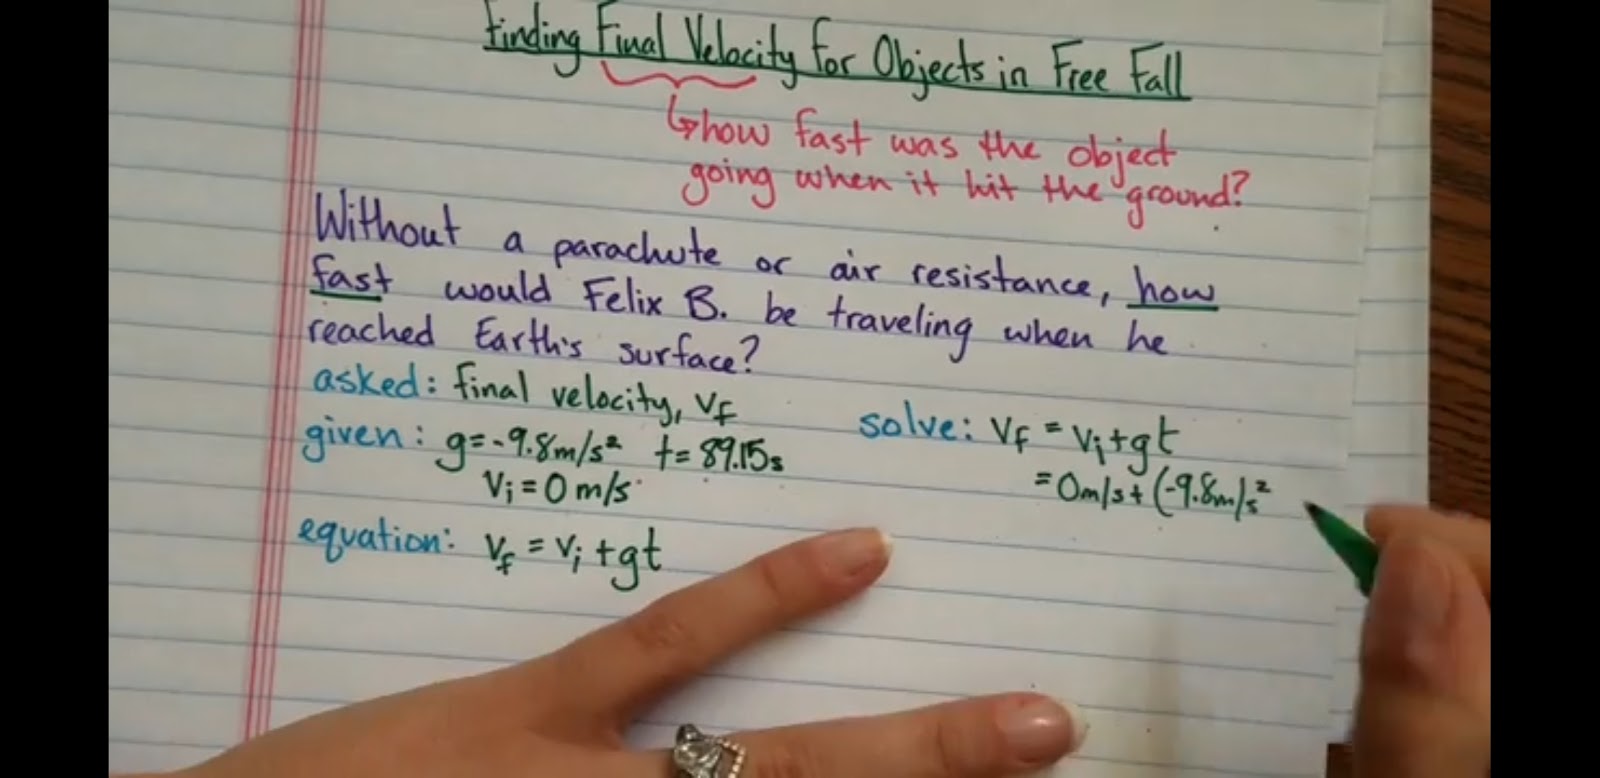 Finding Final Velocity for Objects in Free Fall
↳ how fast was the object
going when it hit the ground?
Without a parachute or air resistance, how
fast would Felix B. be traveling when he
reached Earth's surface?
asked: final velocity, Vf
given: g=-9.8m/s² t= 89.15s
Vi = 0 m/s
equation: Vf = Vi + gt
solve: Vf = Vi+gt
= 0m/s + (-9.8m/s²